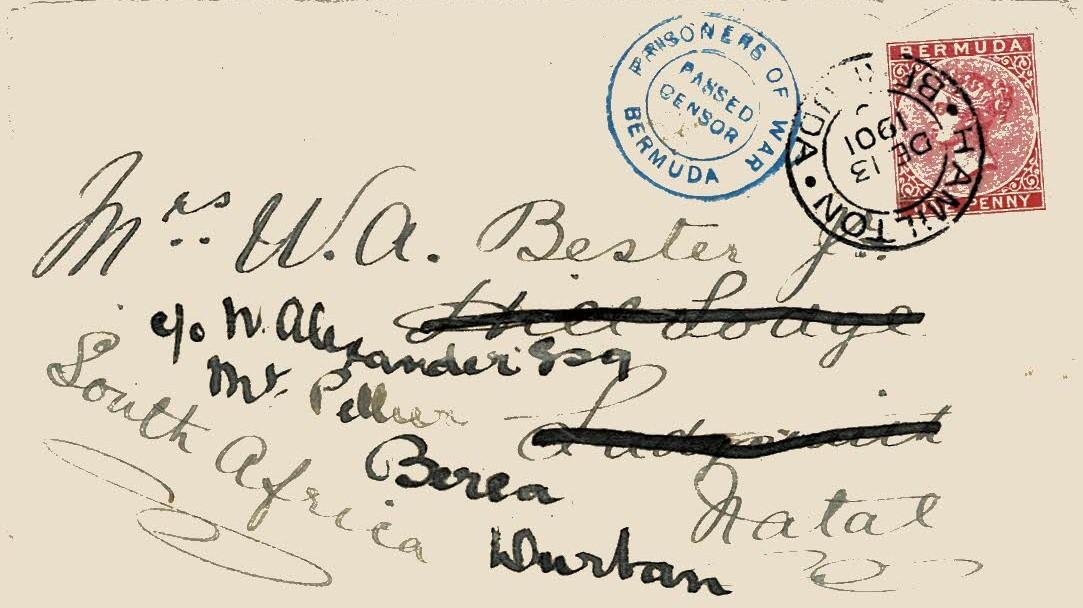 PRISONERS OF WAR
PASSED
CENSOR
BERMUDA
BERMUDA
PENNY
HAMILTON BERMUDA
DE 13
1901
Mrs W. A. Bester Jr.
Hill Lodge
c/o W. Alexander Esq
Mt. Pellier
Ladysmith
South Africa
Berea
Natal
Durban